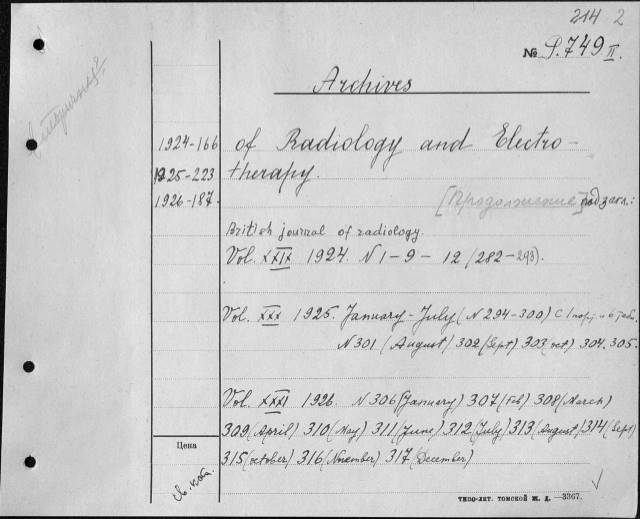 214 2
№ P.749 II.
Archives
1924-166 of Radiology and Electro-
1925-223 therapy.
1926-187.
[Продолжение] под загл.:
British journal of radiology.
Vol. XXIX 1924. N 1-9-12 (282-293).
Vol. XXX 1925. January-July (N 294-300) с 1 порт. и 6 табл.
N 301 (August) 302 (Sept) 303 (oct) 304. 305.
Vol. XXXI 1926. N 306 (January) 307 (Feb) 308 (March)
309 (April) 310 (May) 311 (June) 312 (July) 313 (August) 314 (Sept)
Цена
315 (october) 316 (November) 317 (December)
типо-лит. томской ж. д. —3367.